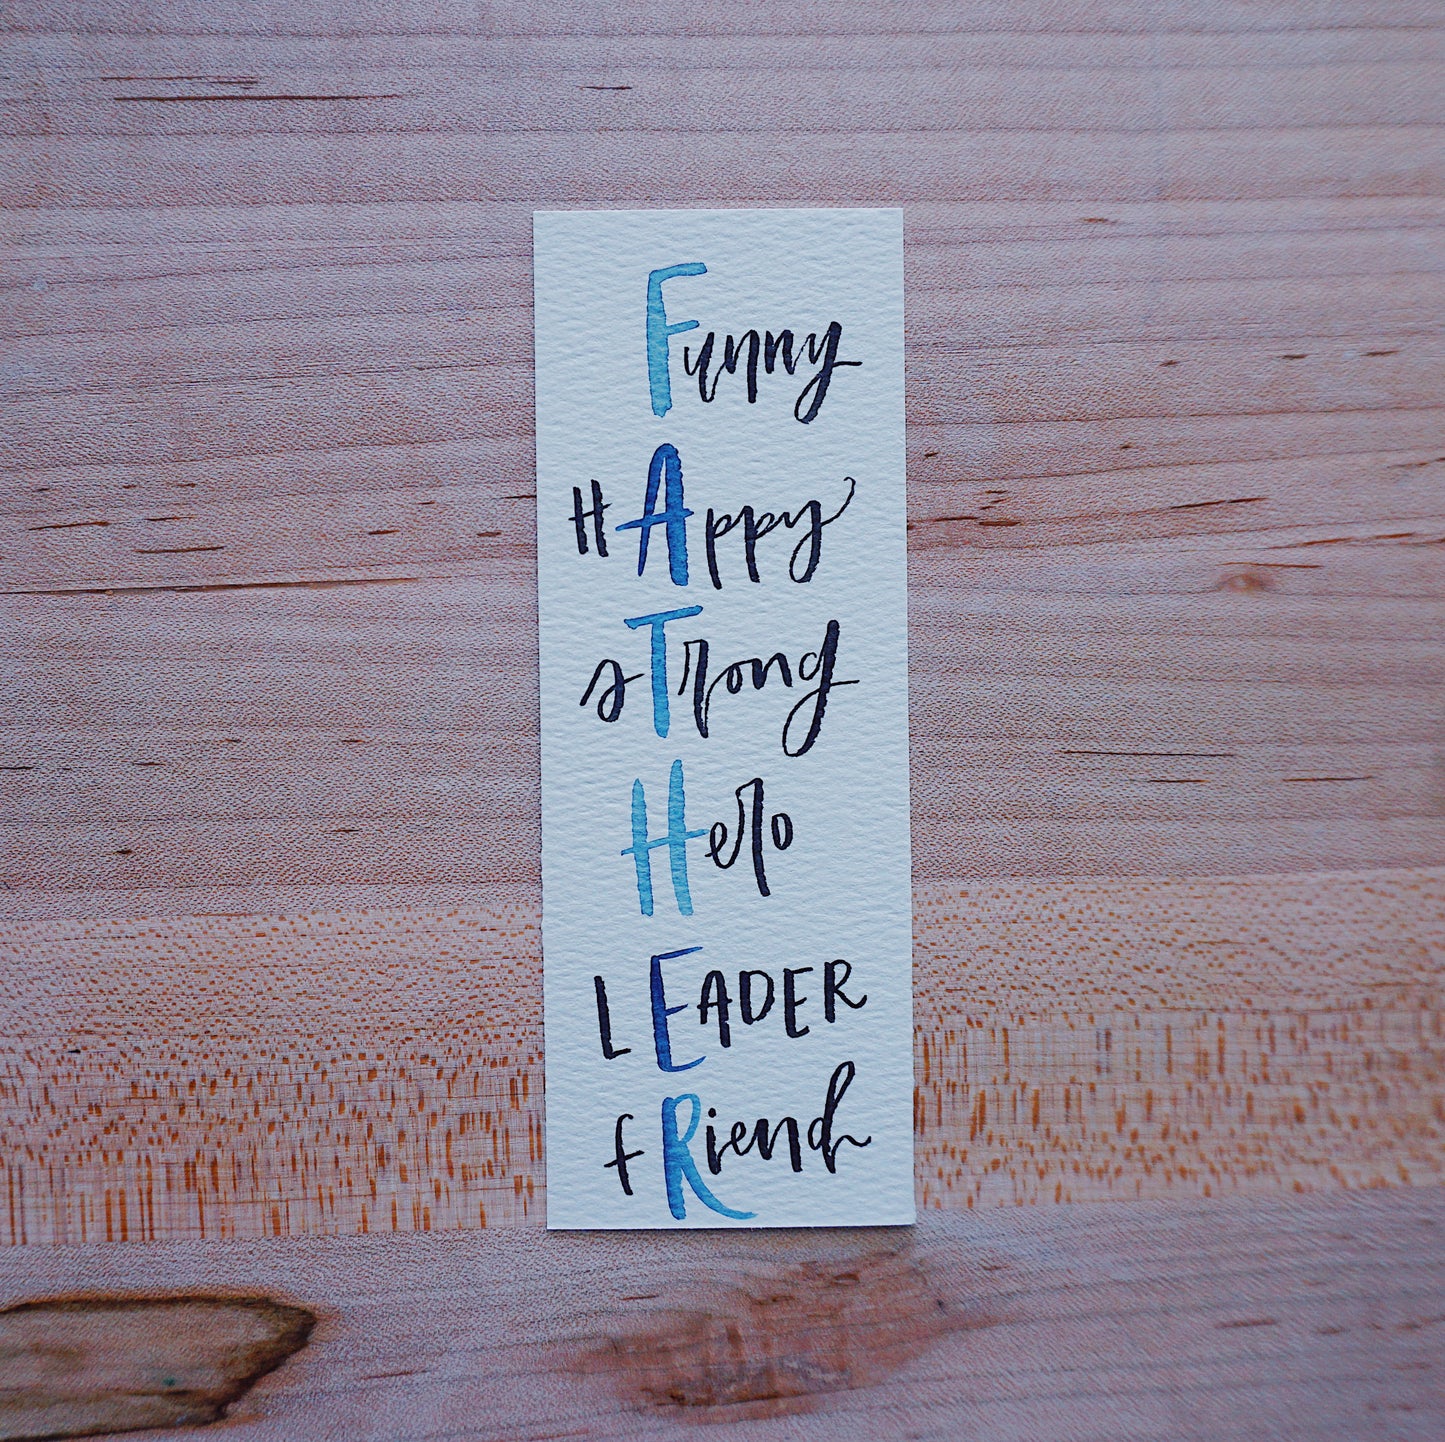 Funny
HAppy
sTrong
Hero
LEADER
fRiend